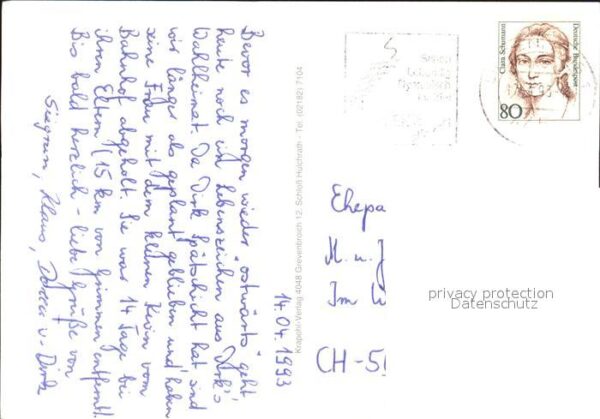 14.04.1993
Bevor es morgen wieder "ostwärts" geht
heute noch ein Lebenszeichen aus Dirk's
Wahlheimat. Da Dirk Spätschicht hat sind
wir länger als geplant geblieben und haben
seine Frau mit dem kleinen Kevin vom
Bahnhof abgeholt. Sie war 14 Tage bei
ihren Eltern (15 km von Grimmen entfernt).
Bis bald herzlich - liebe Grüße von
Siegrun, Klaus, und Dirk
Krapohl-Verlag 4048 Grevenbroich 12, Schloß Hülchrath · Tel. (02182) 7104
Clara Schumann
Deutsche Bundespost
80
Ehepa
M. u. J
Im W
CH-5
privacy protection
Datenschutz